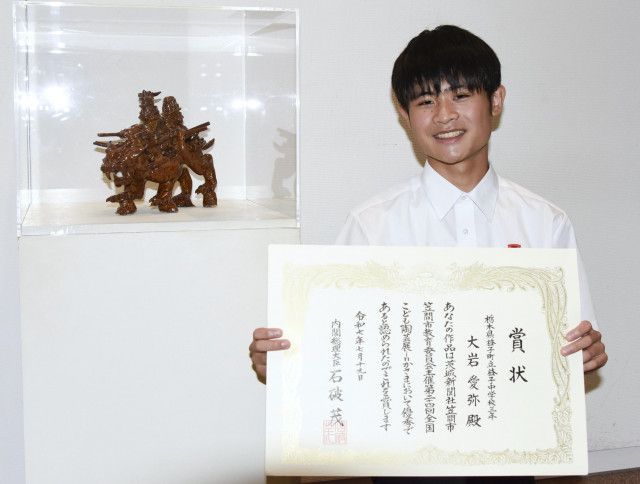 賞状
栃木県益子町立益子中学校三年
大岩愛弥殿
あなたの作品は茨城新聞社笠間市
笠間市教育委員会主催第二四回全国
こども陶芸展inかさまにおいて優秀で
あると認められたのでこれを賞します
令和七年七月十九日
内閣総理大臣 石破茂